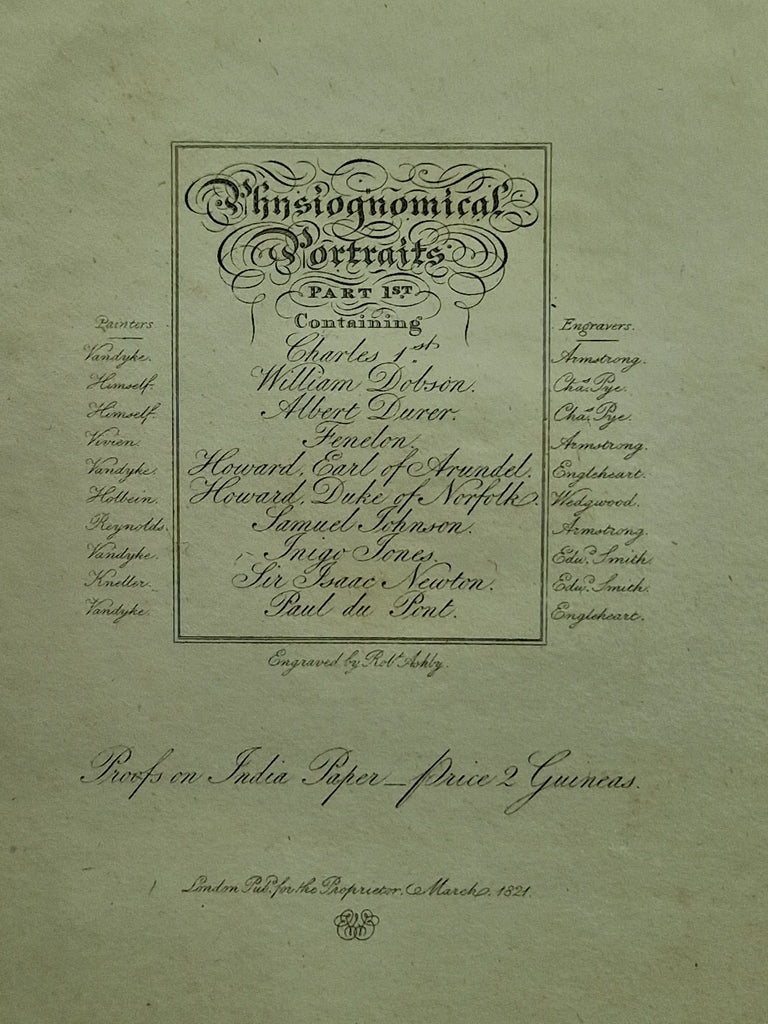 Physiognomical
Portraits
PART 1ST
Containing
Painters Engravers.
Vandyke. Charles 1st Armstrong.
Himself. William Dobson. Chas. Pye.
Himself. Albert Durer. Chas. Pye.
Vivien. Fenelon. Armstrong.
Vandyke. Howard, Earl of Arundel. Engleheart.
Holbein. Howard, Duke of Norfolk. Wedgwood.
Reynolds. Samuel Johnson. Armstrong.
Vandyke. Inigo Jones. Edwd. Smith.
Kneller. Sir Isaac Newton. Edwd. Smith.
Vandyke. Paul du Pont. Engleheart.
Engraved by Robt. Ashby.
Proofs on India Paper—Price 2 Guineas.
London Pubd. for the Proprietor, March, 1821.